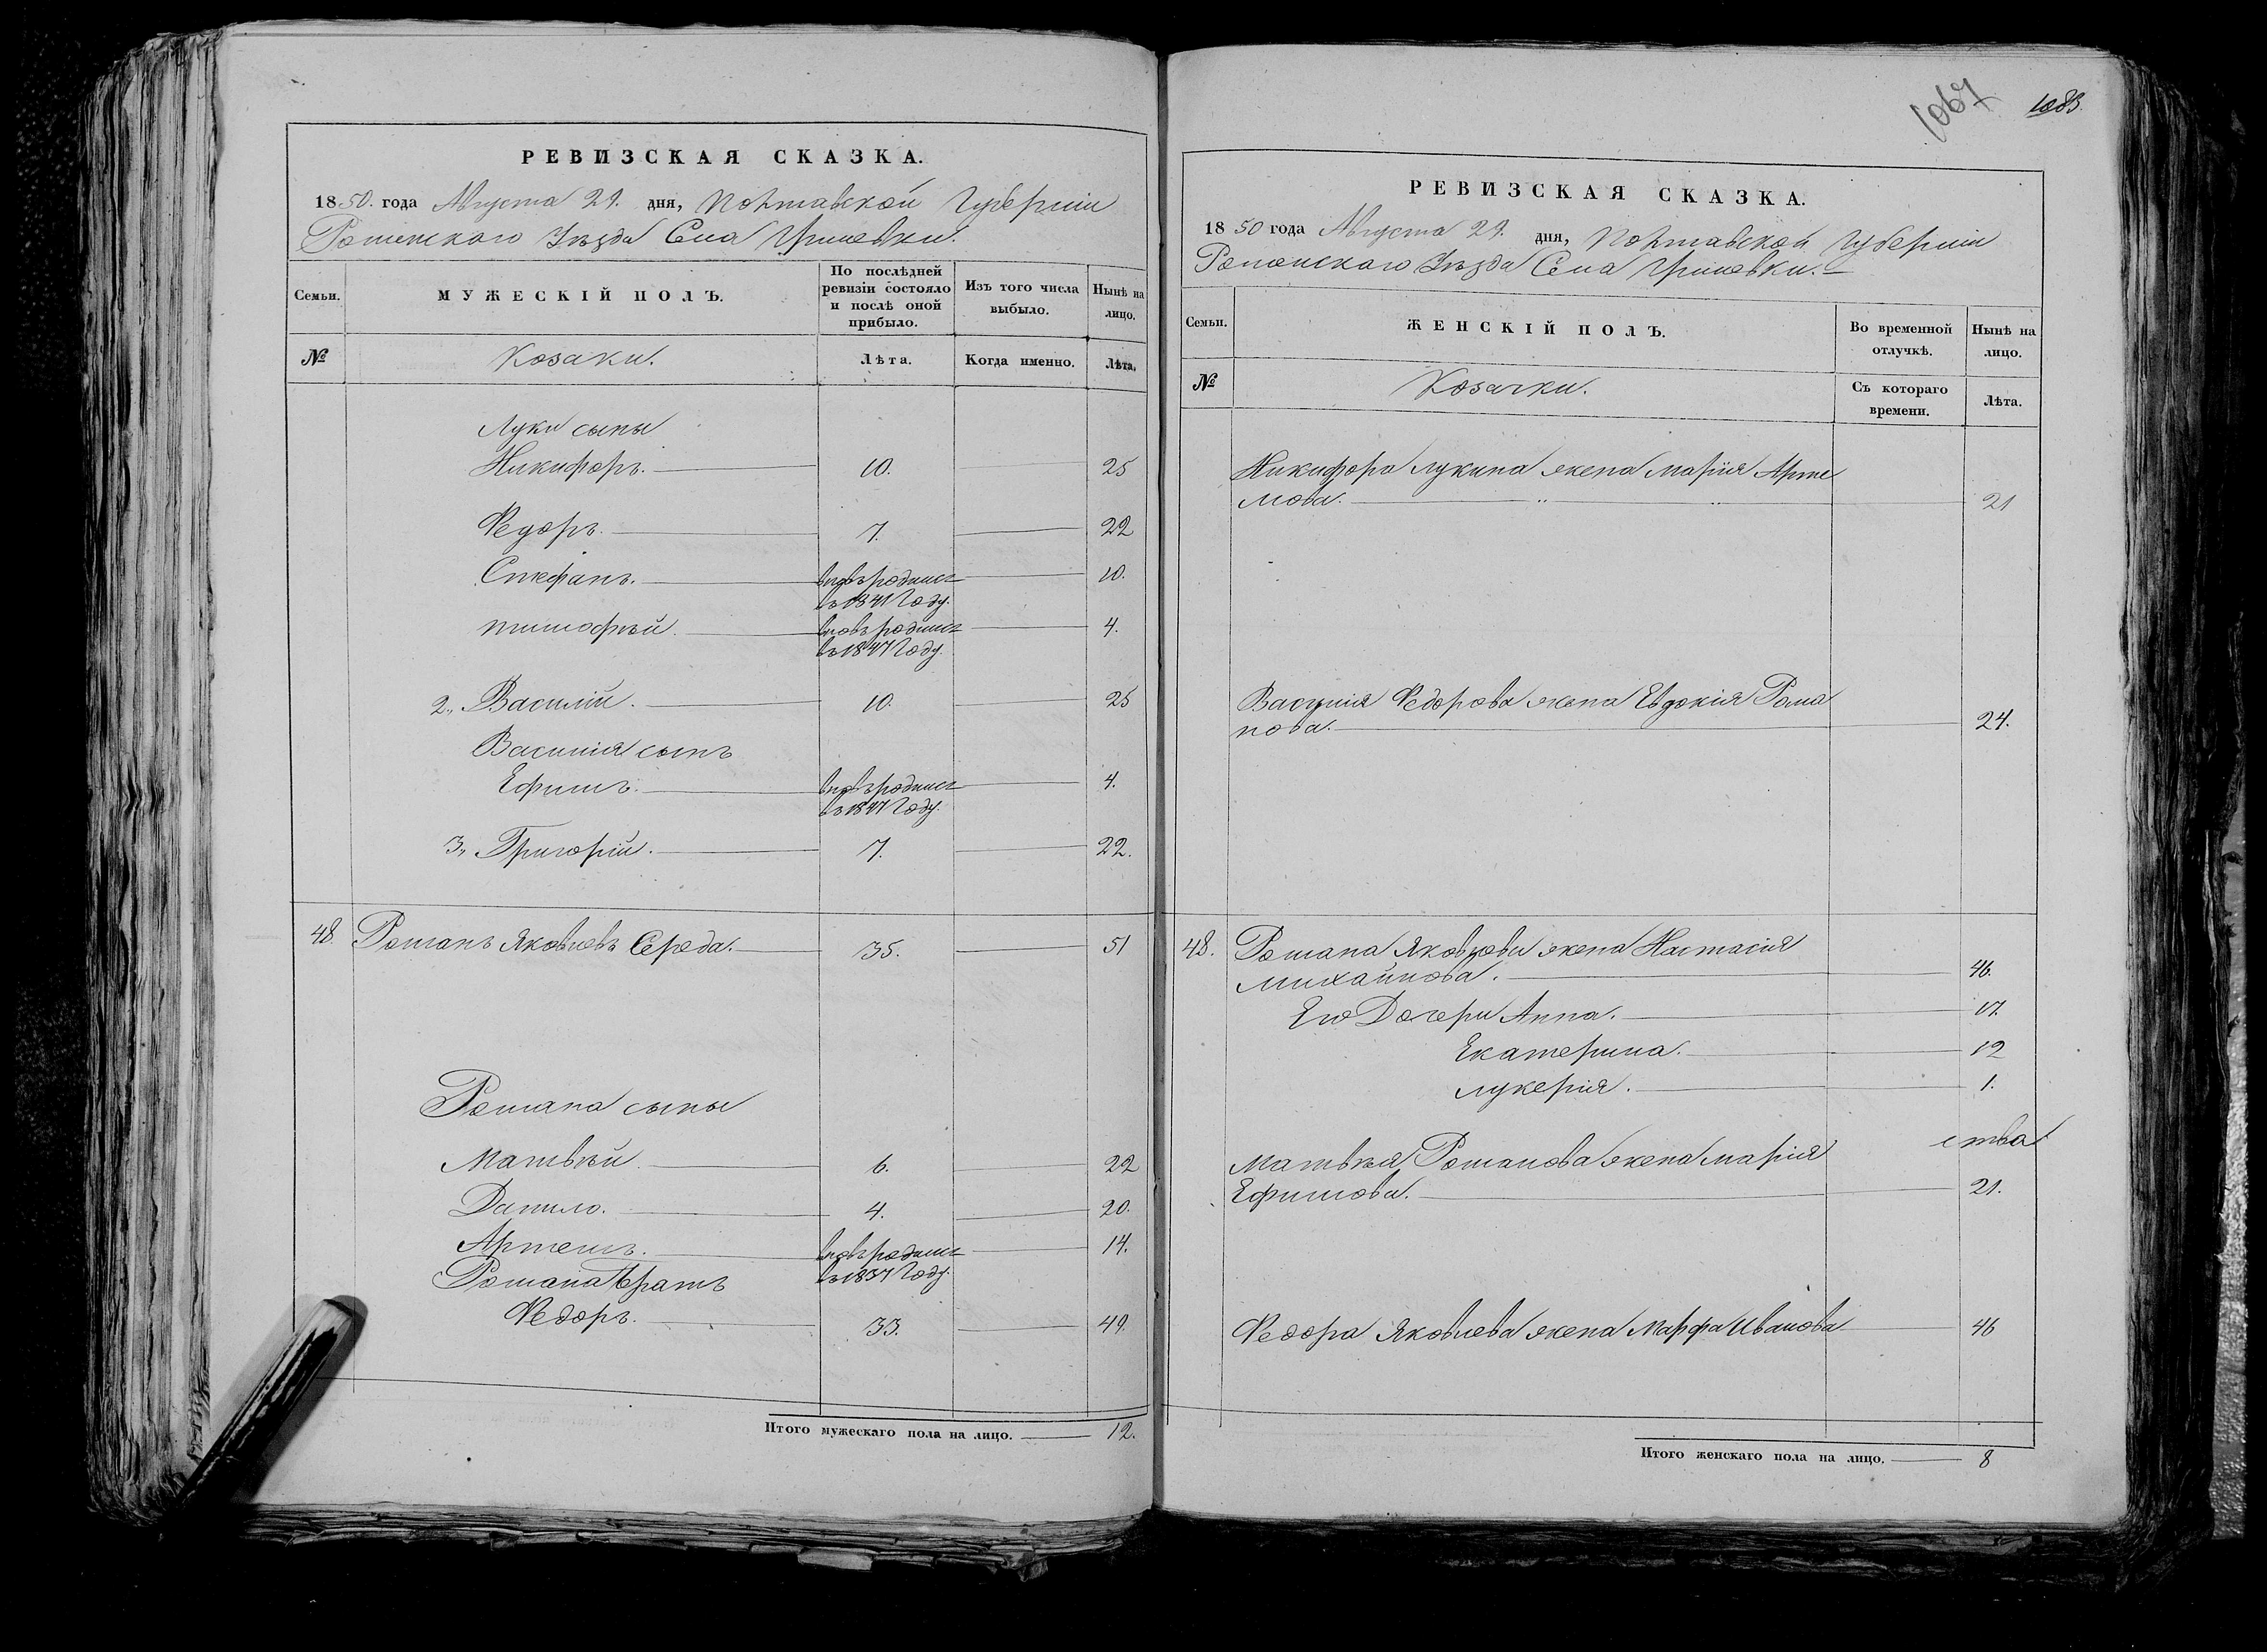 РЕВИЗСКАЯ СКАЗКА.
1850. года Августа 29. дня, Полтавской Губерніи
Роменского Уѣзда Села Гриневки.
Семьи.
МУЖЕСКІЙ ПОЛЪ.
По послѣдней ревизіи состояло и послѣ оной прибыло.
Изъ того числа выбыло.
Нынѣ на лицо.
№
Козаки.
Лѣта.
Когда именно.
Лѣта.
Луки сыны
Никифоръ. 10. 25
Федоръ. 7. 22
Стефанъ. вновь родился 10.
въ 1841 Году.
Тимофѣй. вновь родился 4.
въ 1847 Году.
2., Василій. 10. 25
Василія сынъ
Ефимъ. вновь родился 4.
въ 1847 Году.
3., Григорій. 7. 22.
48. Романъ Яковлевъ Середа. 35. 51
Романа сыны
Матвѣй. 6. 22
Данило. 4. 20.
Артемъ. вновь родился 14.
Романа братъ въ 1837 Году.
Федоръ. 33. 49.
Итого мужескаго пола на лицо. 12.
1067 1083.
РЕВИЗСКАЯ СКАЗКА.
1850 года Августа 29. дня, Полтавской Губерніи
Роменского Уѣзда Села Гриневки.
Семьи.
ЖЕНСКІЙ ПОЛЪ.
Во временной отлучкѣ.
Нынѣ на лицо.
№
Козачки.
Съ котораго времени.
Лѣта.
Никифора Лукина жена Марія Арте
мова. 21
Василія Федорова жена Евдокія Рома
нова. 24.
48. Романа Яковлева жена Настасія
Михайлова. 46.
Его Дочери Анна. 17.
Екатерина. 12
Лукерія. 1.
ства
Матвѣя Романова жена Марія
Ефимова. 21.
Федора Яковлева жена Марфа Иванова 46
Итого женскаго пола на лицо. 8